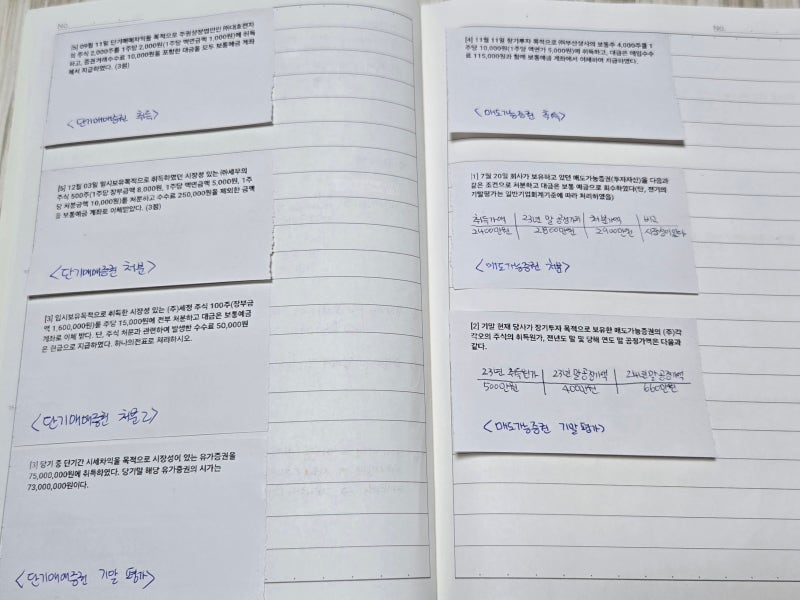 No.
[5] 09월 11일 단기매매차익을 목적으로 주권상장법인인 ㈜대호전자
의 주식 2,000주를 1주당 2,000원(1주당 액면금액 1,000원)에 취득
하고, 증권거래수수료 10,000원을 포함한 대금을 모두 보통예금 계좌
에서 지급하였다. (3점)
<단기매매증권 취득>
[5] 12월 03일 일시보유목적으로 취득하였던 시장성 있는 ㈜세무의
주식 500주(1주당 장부금액 8,000원, 1주당 액면금액 5,000원, 1주
당 처분금액 10,000원)를 처분하고 수수료 250,000원을 제외한 금액
을 보통예금 계좌로 이체받았다. (3점)
<단기매매증권 처분>
[3] 일시보유목적으로 취득한 시장성 있는 (주)세정 주식 100주(장부금
액 1,600,000원)를 주당 15,000원에 전부 처분하고 대금은 보통예금
계좌로 이체 받다. 단, 주식 처분과 관련하여 발생한 수수료 50,000원
은 현금으로 지급하였다. 하나의전표로 처리하시오.
<단기매매증권 처분2>
[3] 당기 중 단기간 시세차익을 목적으로 시장성이 있는 유가증권을
75,000,000원에 취득하였다. 당기말 해당 유가증권의 시가는
73,000,000원이다.
<단기매매증권 기말 평가>
No.
[4] 11월 11일 장기투자 목적으로 ㈜부산상사의 보통주 4,000주를 1
주당 10,000원(1주당 액면가 5,000원)에 취득하고, 대금은 매입수수
료 115,000원과 함께 보통예금 계좌에서 이체하여 지급하였다.
<매도가능증권 취득>
[1] 7월 20일 회사가 보유하고 있던 매도가능증권(투자자산)을 다음과
같은 조건으로 처분하고 대금은 보통 예금으로 회수하였다(단, 전기의
기말평가는 일반기업회계기준에 따라 처리하였음)
취득가액 23년 말 공정가치 처분가액 비고
2400만원 2800만원 2900만원 시장성이있다
<매도가능증권 처분>
[2] 기말 현재 당사가 장기투자 목적으로 보유한 매도가능증권의 (주)각
각오의 주식의 취득원가, 전년도 말 및 당해 연도 말 공정가액은 다음과
같다.
23년 취득원가 23년 말 공정가액 24년 말 공정가액
500만원 400만원 660만원
<매도가능증권 기말평가>